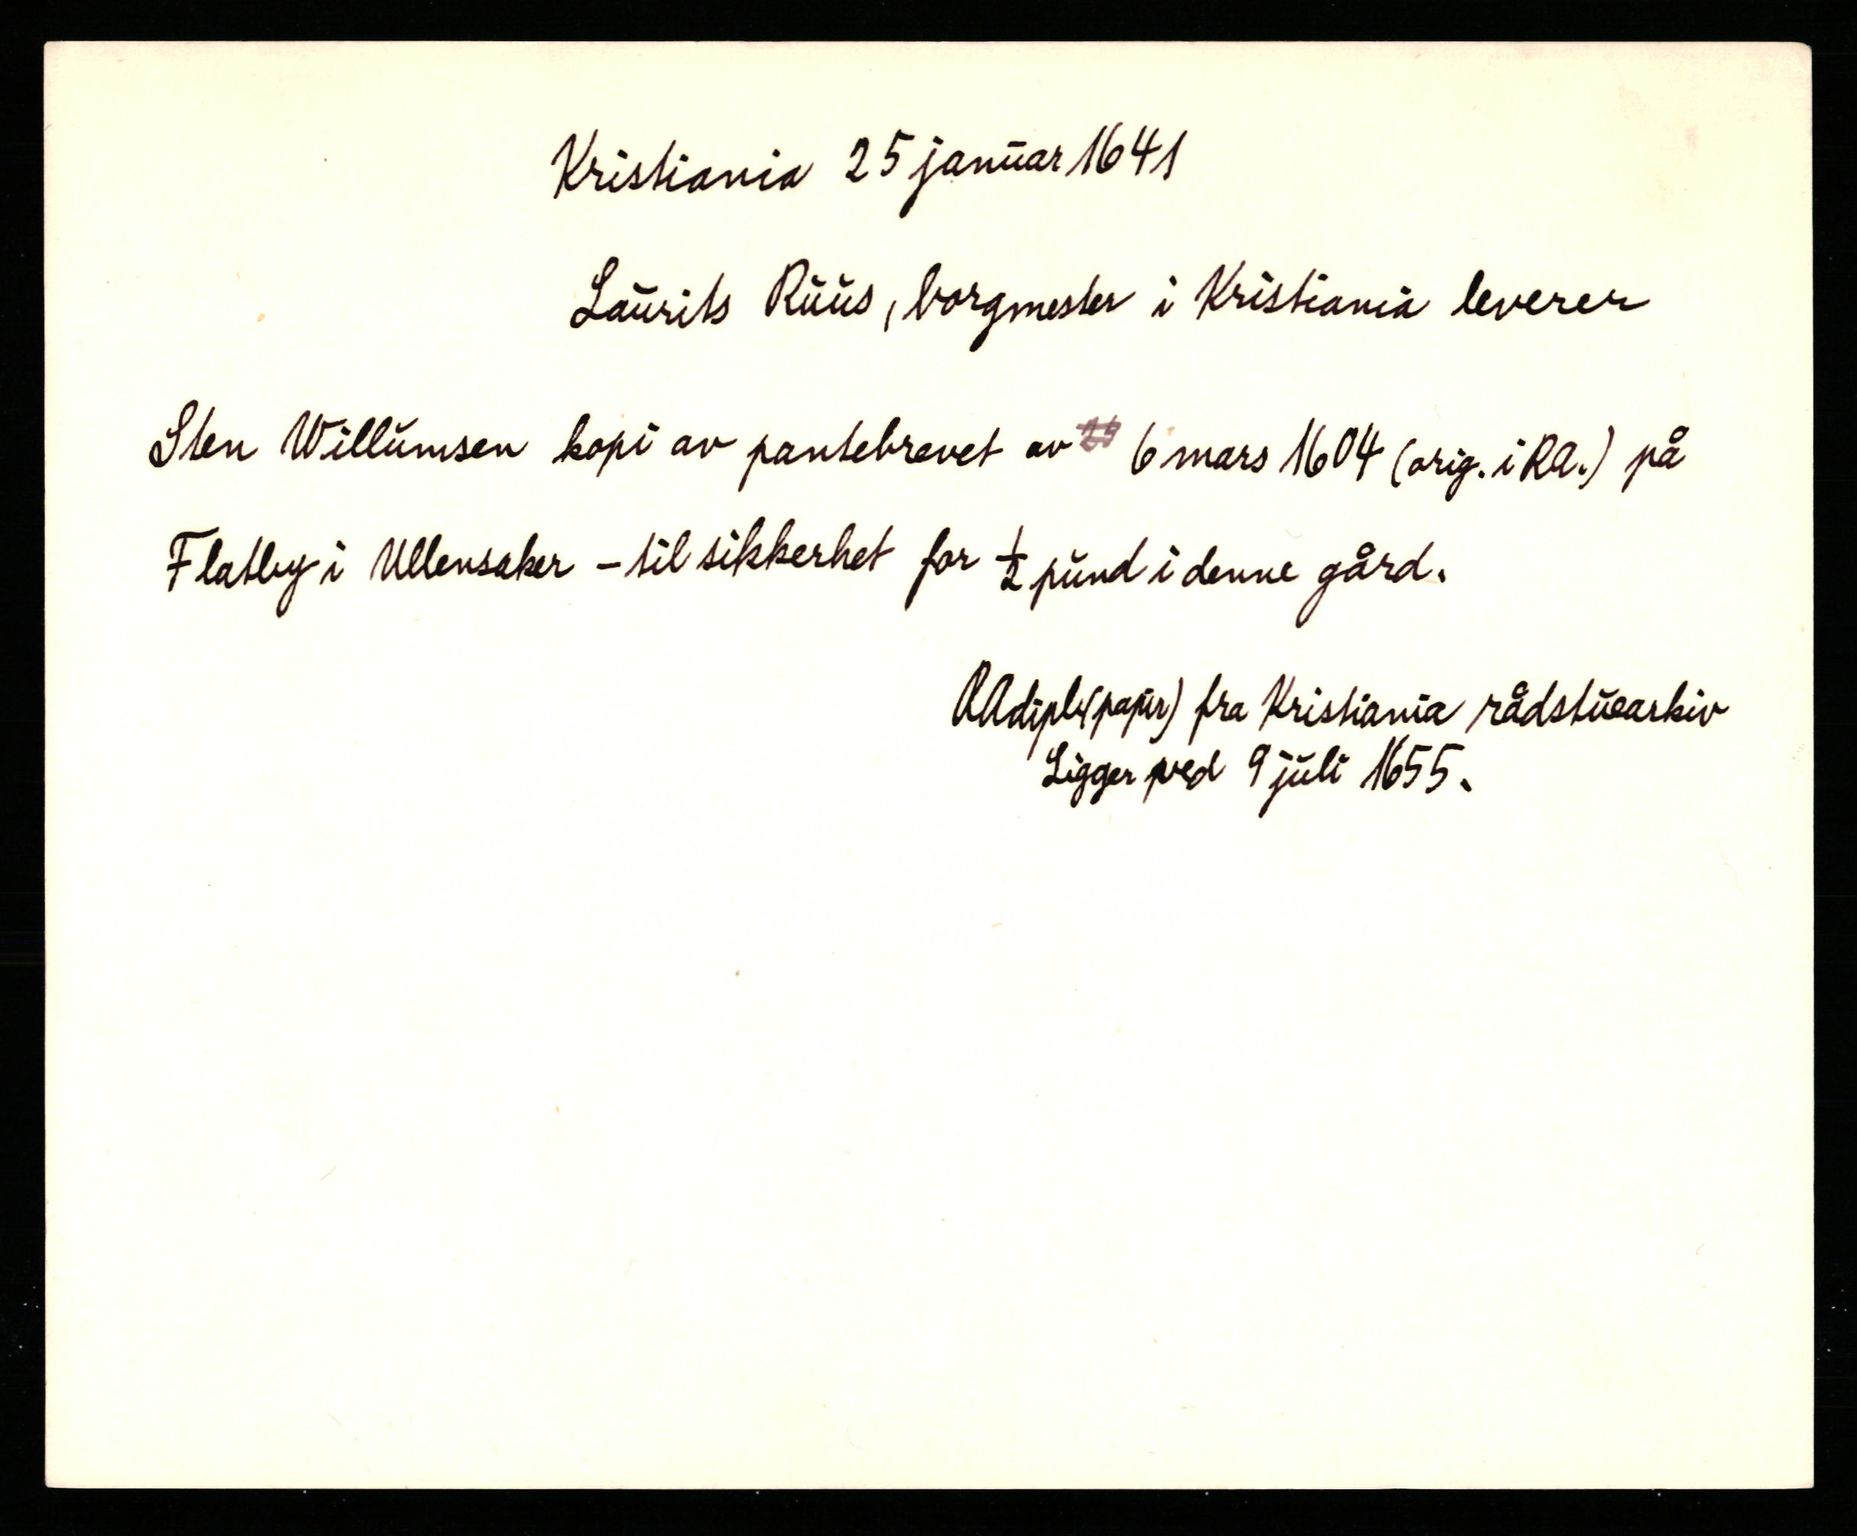 Kristiania 25 januar 1641
Laurits Ruus, borgmester i Kristiania leverer
Sten Willumsen kopi av pantebrevet av 6 mars 1604 (orig. i RA.) på
Flatby i Ullensaker - til sikkerhet for ½ pund i denne gård.
RAdipl. (papir) fra Kristiania rådstuearkiv
Ligger ved 9 juli 1655.